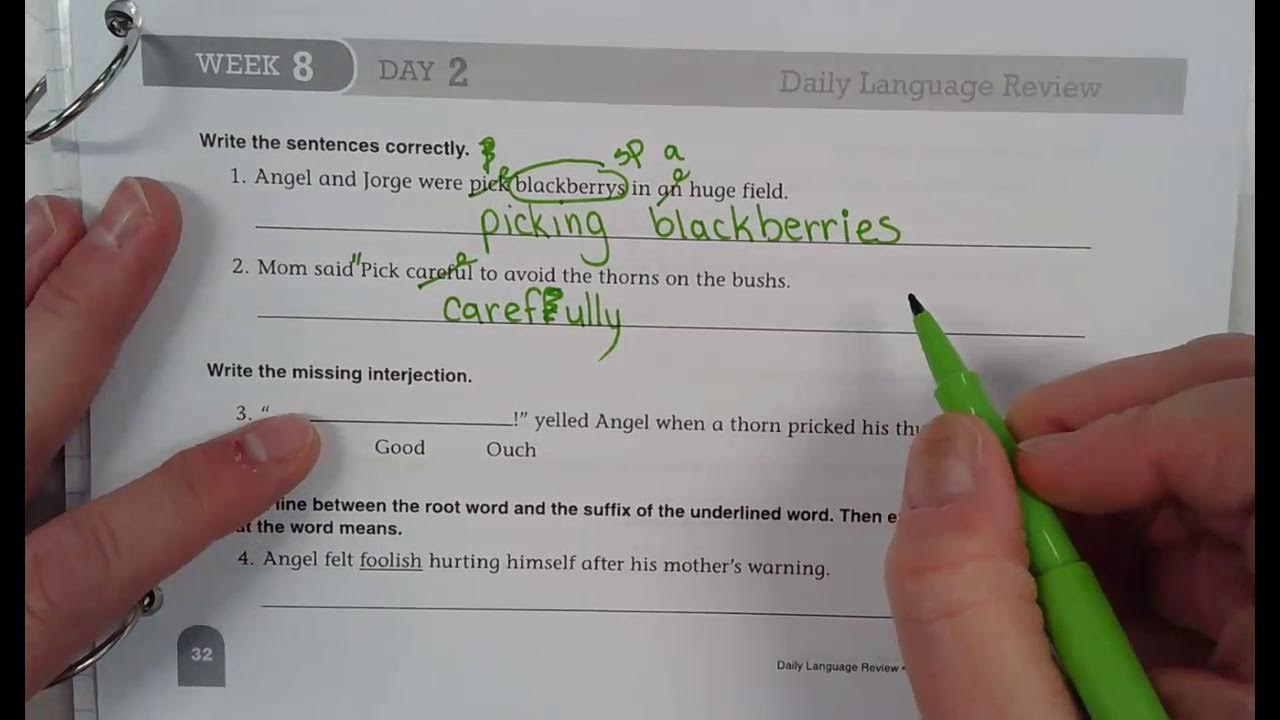 WEEK 8 DAY 2 Daily Language Review
Write the sentences correctly.
sp a
1. Angel and Jorge were pick blackberrys in an huge field.
picking blackberries
2. Mom said "Pick careful to avoid the thorns on the bushs.
carefully
Write the missing interjection.
3. “ !” yelled Angel when a thorn pricked his
Good Ouch
line between the root word and the suffix of the underlined word. Then
the word means.
4. Angel felt foolish hurting himself after his mother’s warning.
32
Daily Language Review •